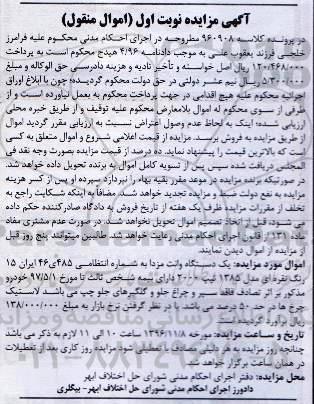 آگهی مزایده نوبت اول (اموال منقول)
در پرونده کلاسه ۹۶۰۹۰۸ مطروحه در اجرای احکام مدنی محکوم علیه فرامرز
خلجی فرزند یعقوب علی به موجب دادنامه ۴/۹۶ هیدج محکوم است به پرداخت
۱۲۰/۴۶۸/۰۰۰ ریال اصل خواسته و تأخیر تادیه و هزینه دادرسی حق الوکاله و مبلغ
۵/۳۰۰/۰۰۰ ریال نیم عشر دولتی در حق دولت محکوم گردیده؛ چون با ابلاغ اوراق
اجرائیه محکوم علیه هیچ اقدامی در جهت پرداخت محکوم به بعمل نیاورده است و از
طرفی از سوی محکوم له اموال بلامعارض محکوم علیه توقیف و از طریق خبره محلی
ارزیابی شده؛ اینک به لحاظ عدم وصول اعتراض نسبت به ارزیابی مقرر گردید اموال
از طریق مزایده به فروش برسد. مزایده از قیمت اعلامی شروع و اموال متعلق به کسی
است که بالاترین قیمت را پیشنهاد نماید. ده درصد از قیمت مزایده بصورت وجه نقد فی
المجلس دریافت شده سپس پس از تسویه کامل اموال به برنده تحویل داده خواهد شد.
در صورتیکه برنده مزایده در موعد مقرر بقیه بهاء را نپردازد سپرده او پس از کسر هزینه
مزایده به نفع دولت ضبط و مزایده تجدید خواهد شد. مضافا به اینکه شکایت راجع به
تخلف از مقررات مزایده ظرف یک هفته از تاریخ فروش به دادگاه صادرکننده حکم داده
می شود قبل از اتخاذ تصمیم اموال تحویل نخواهد شد. در صورت عدم مشتری مفاد
ماده ۱۳۱ از قانون اجرای احکام مدنی رعایت خواهد شد. طالبین میتوانند پنج روز قبل
از مزایده از اموال دیدن نمایند.
اموال مورد مزایده: یک دستگاه وانت مزدا به شماره انتظامی ۴۸۵ی۴۶ ایران ۱۵
رنگ نقره ای مدل ۱۳۸۵ تیپ ۲۰۰۰ دارای بیمه شخص ثالث تا مورخ ۹۷/۵/۱ خودرو
مذکور بر اثر تصادف فاقد سپر و چراغ جلو و گلگیرهای جلو چپ می باشد لاستیک
چرخ ها در حد ۵۰ درصد می باشد با در نظر گرفتن نرخ بازار به مبلغ ۱۳۸/۰۰۰/۰۰۰
ریال برآورد گردیده است.
تاریخ و ساعت مزایده: مورخه ۱۳۹۶/۱۱/۸ ساعت ۱۰ الی ۱۱ لازم به ذکر می باشد
چنانچه روز مزایده به هر دلیلی مصادف با تعطیلی شود مزایده روز کاری بعد از تعطیلات
در همان ساعت برگزار خواهد شد.
محل مزایده: دفتر اجرای احکام مدنی شورای حل اختلاف ابهر.
دادورز اجرای احکام مدنی شورای حل اختلاف ابهر- بیگلری